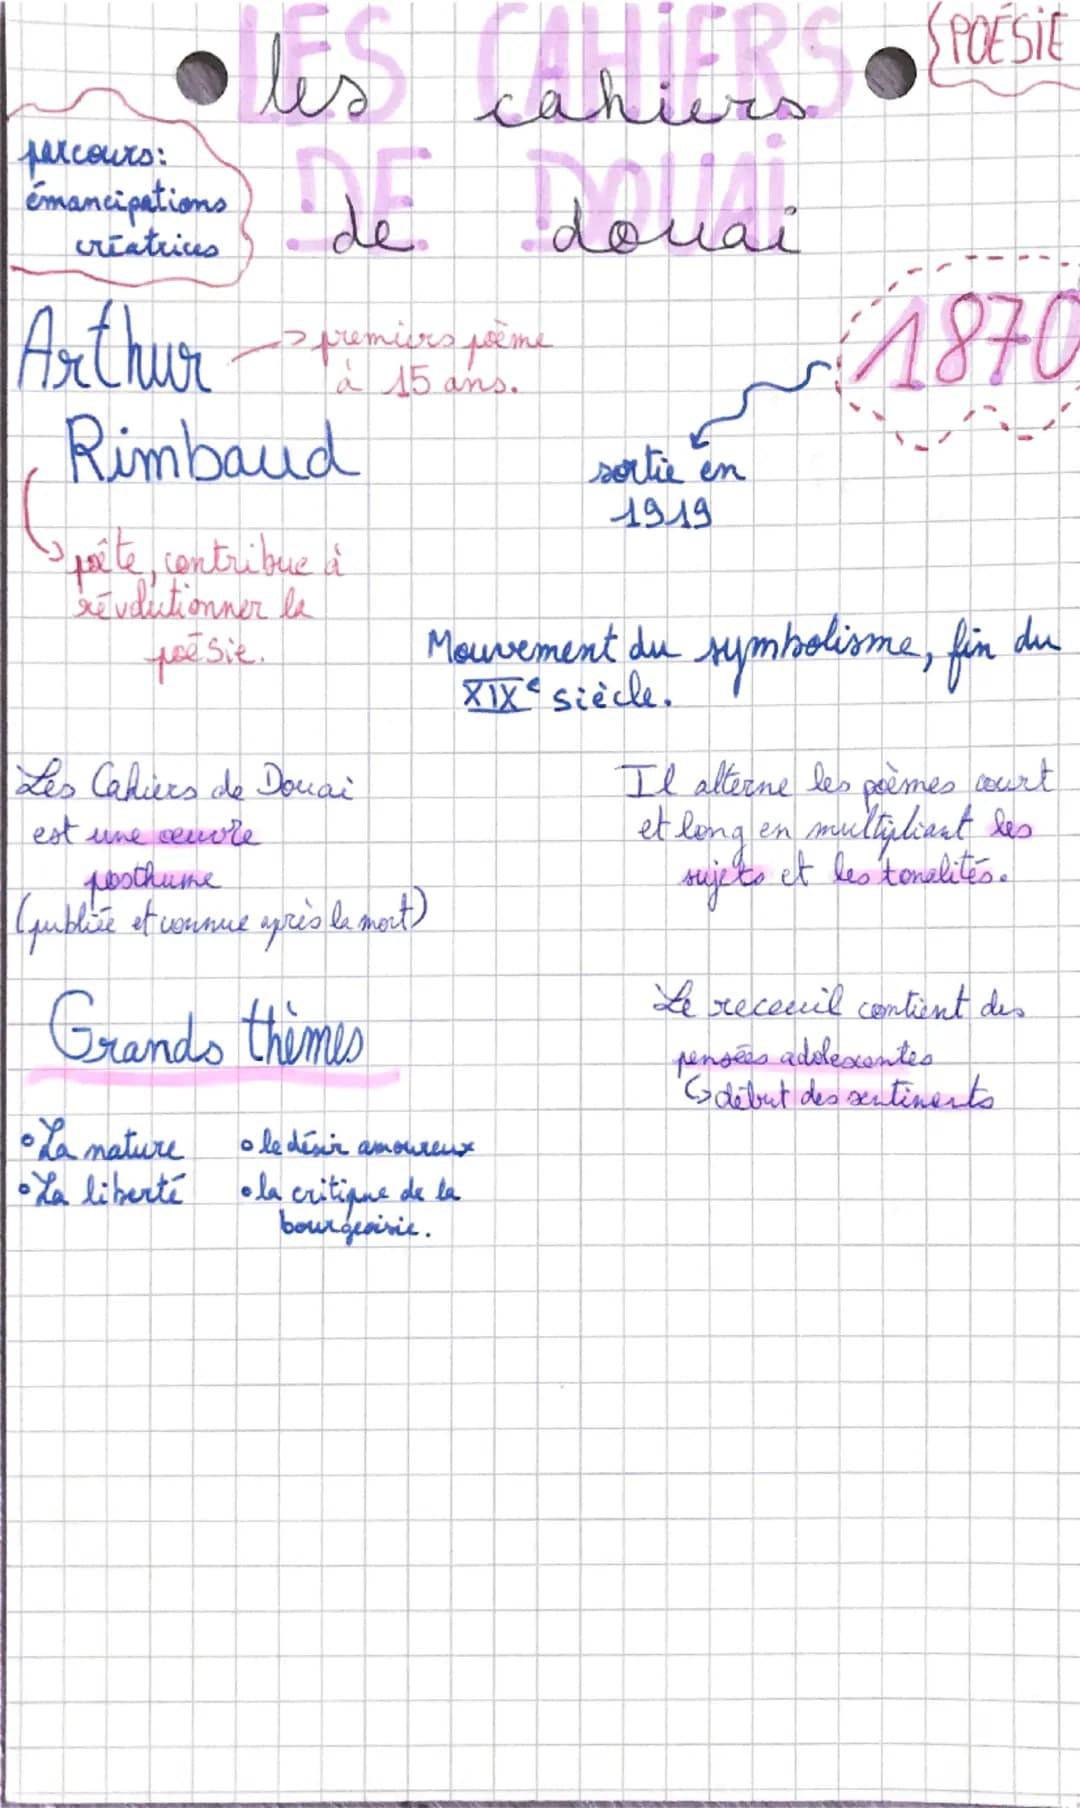 {POÉSIE
LES CAHIERS
les cahiers
DE DOUAI
de douai
parcours:
émancipations
créatrices
1870
Arthur
Rimbaud
→ premiers poème
à 15 ans.
sortie en
1919
↳ poête, contribue à
révolutionner la
poésie.
Mouvement du symbolisme, fin du
XIXe siècle.
Les Cahiers de Douai
est une œuvre
posthume
(publiée et connue après la mort)
Il alterne les poèmes court
et long en multipliant les
sujets et les tonalités.
Grands thèmes
• La nature
• La liberté
• le désir amoureux
• la critique de la
bourgeoisie.
Le receuil contient des
pensées adolescentes
↳ début des sentiments